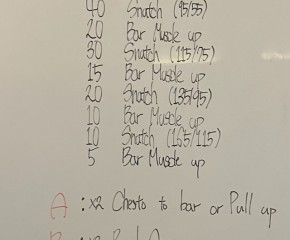 40 Snatch (95/55)
20 Bar Muscle up
30 Snatch (115/75)
15 Bar Muscle up
20 Snatch (135/95)
10 Bar Muscle up
10 Snatch (165/115)
5 Bar Muscle up
A : x2 Chest to bar or Pull up